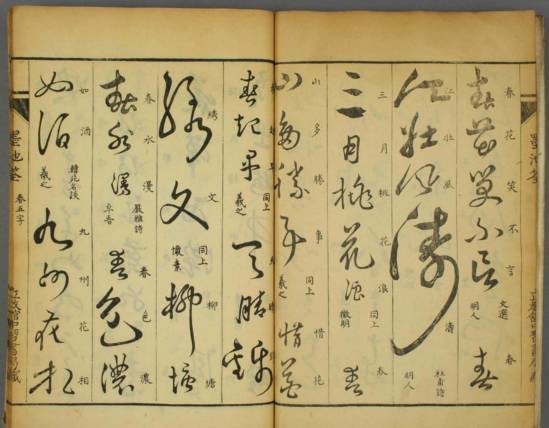 春花笑不言 文選 明人 春
江壯風濤 杜甫詩 明人
三月桃花浪 同上 徵明 春
山多勝事 同上 羲之 惜花
春起早 同上 羲之 天晴錦
繡文 同上 懷素 柳塘
春水漫 嚴維詩 春色濃
如酒 羲之 九州花相
墨池 卷五字